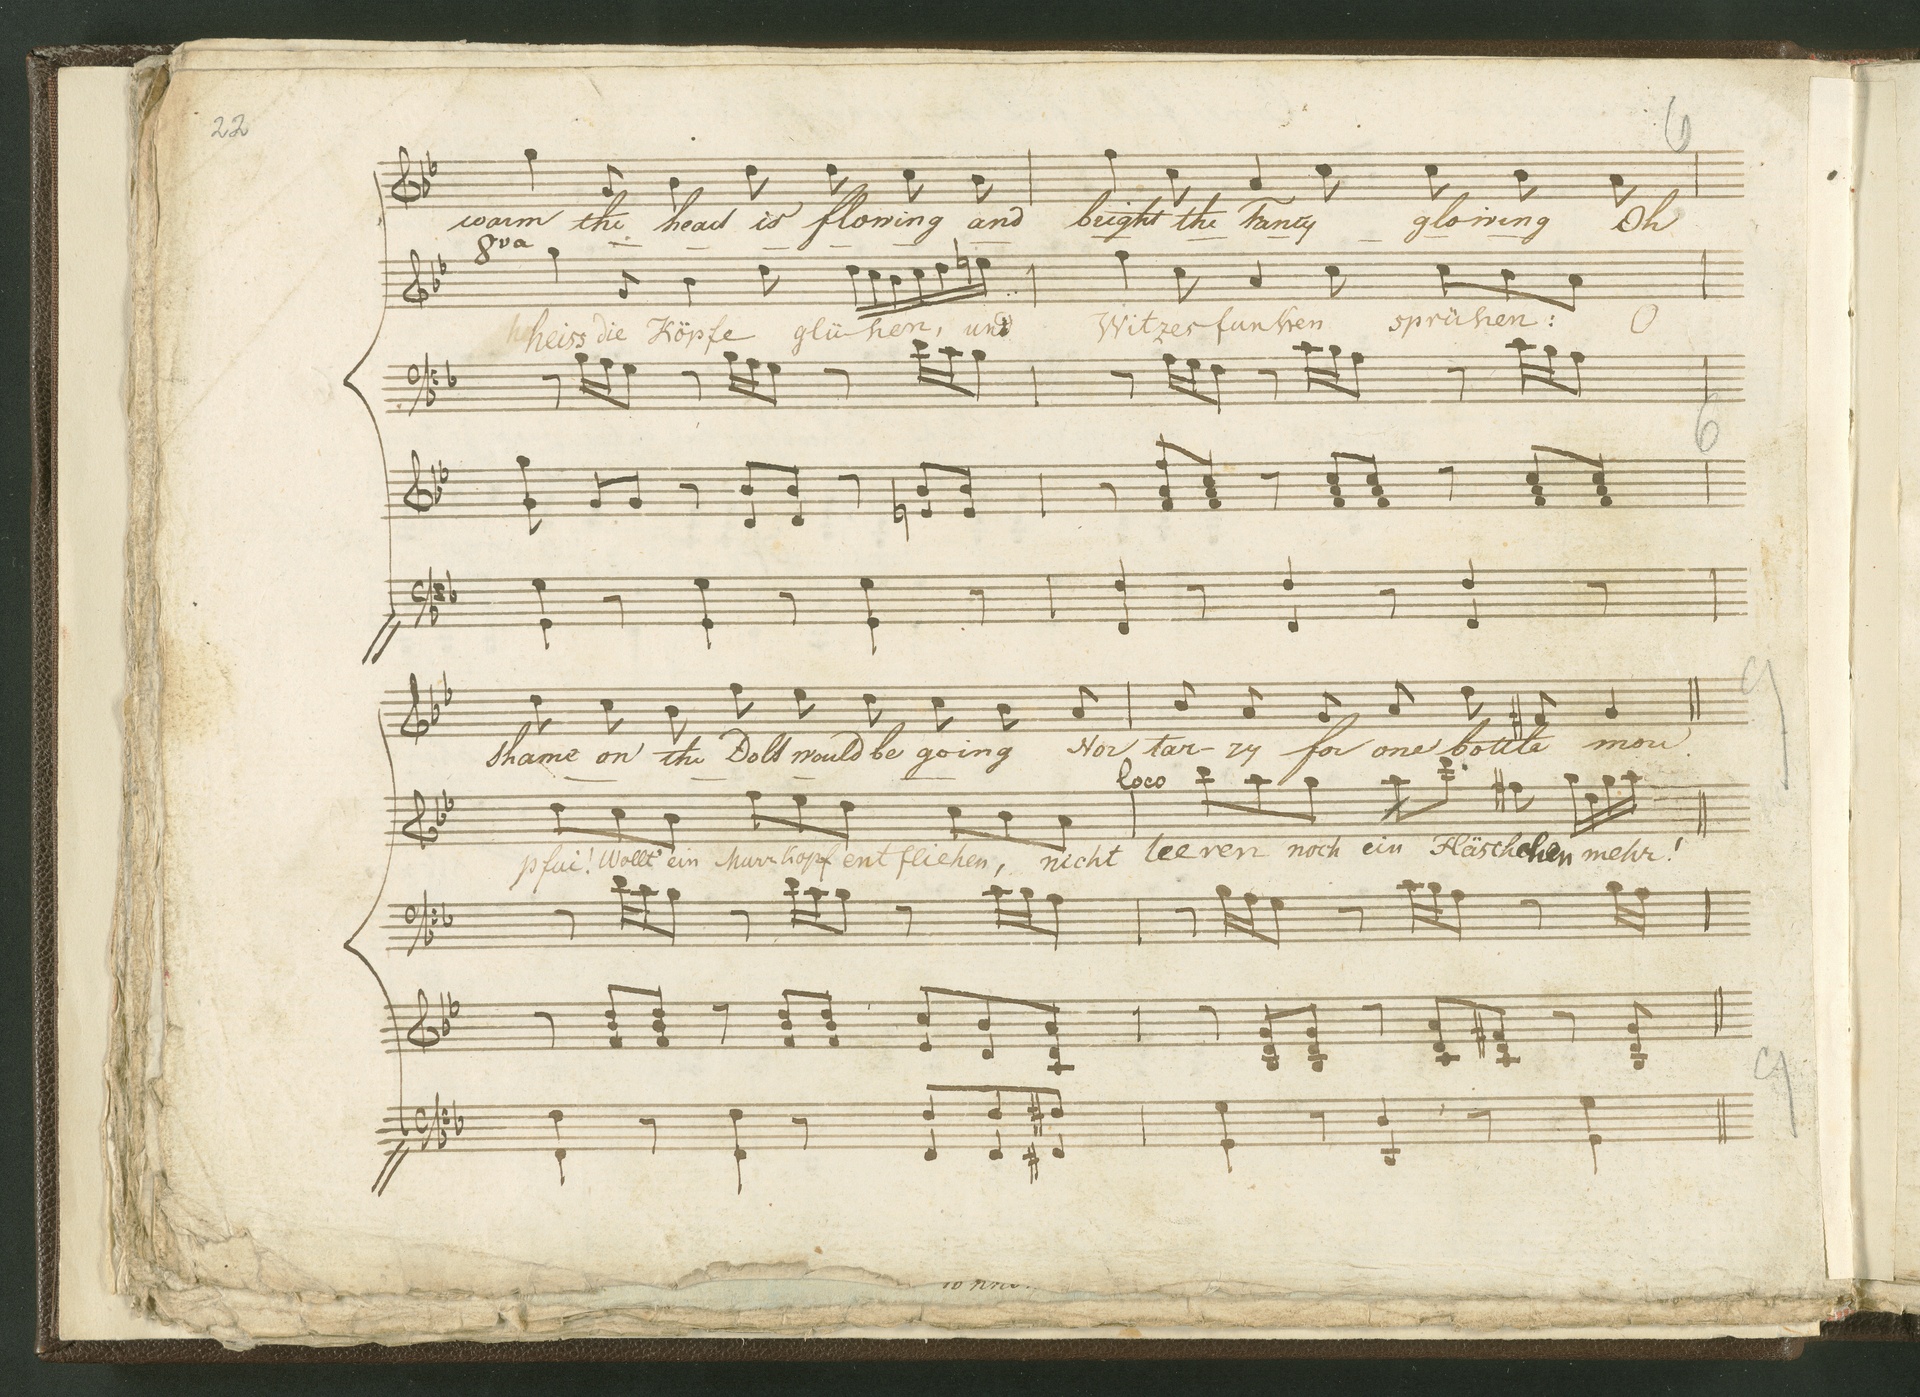 22
6
warm the head is flowing and bright the Fancy glowing Oh
8va
heiss die Köpfe glü hen, und Witzesfunken sprühen: O
6
shame on the Dolt would be going Nor tar-ry for one bottle more
loco
pfui! Wollt' ein Murrkopf entfliehen, nicht leeren noch ein Fläschchen mehr!